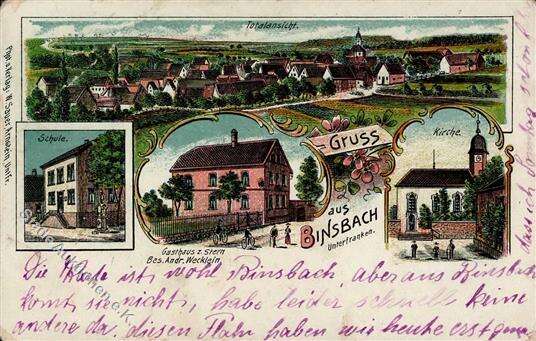 Totalansicht.
Phot. u. Verlag v. H. Sauer, Arnstein, Unfr.
Schule.
Gruss
aus
BINSBACH
Unterfranken.
Kirche.
Gasthaus z. Stern
Bes. Andr. Wecklein.
Die Karte ist wohl Binsbach, aber aus Binsbach
komt sie nicht, habe leider schnell keine
andere da. diesen Plahn haben wir heute erst